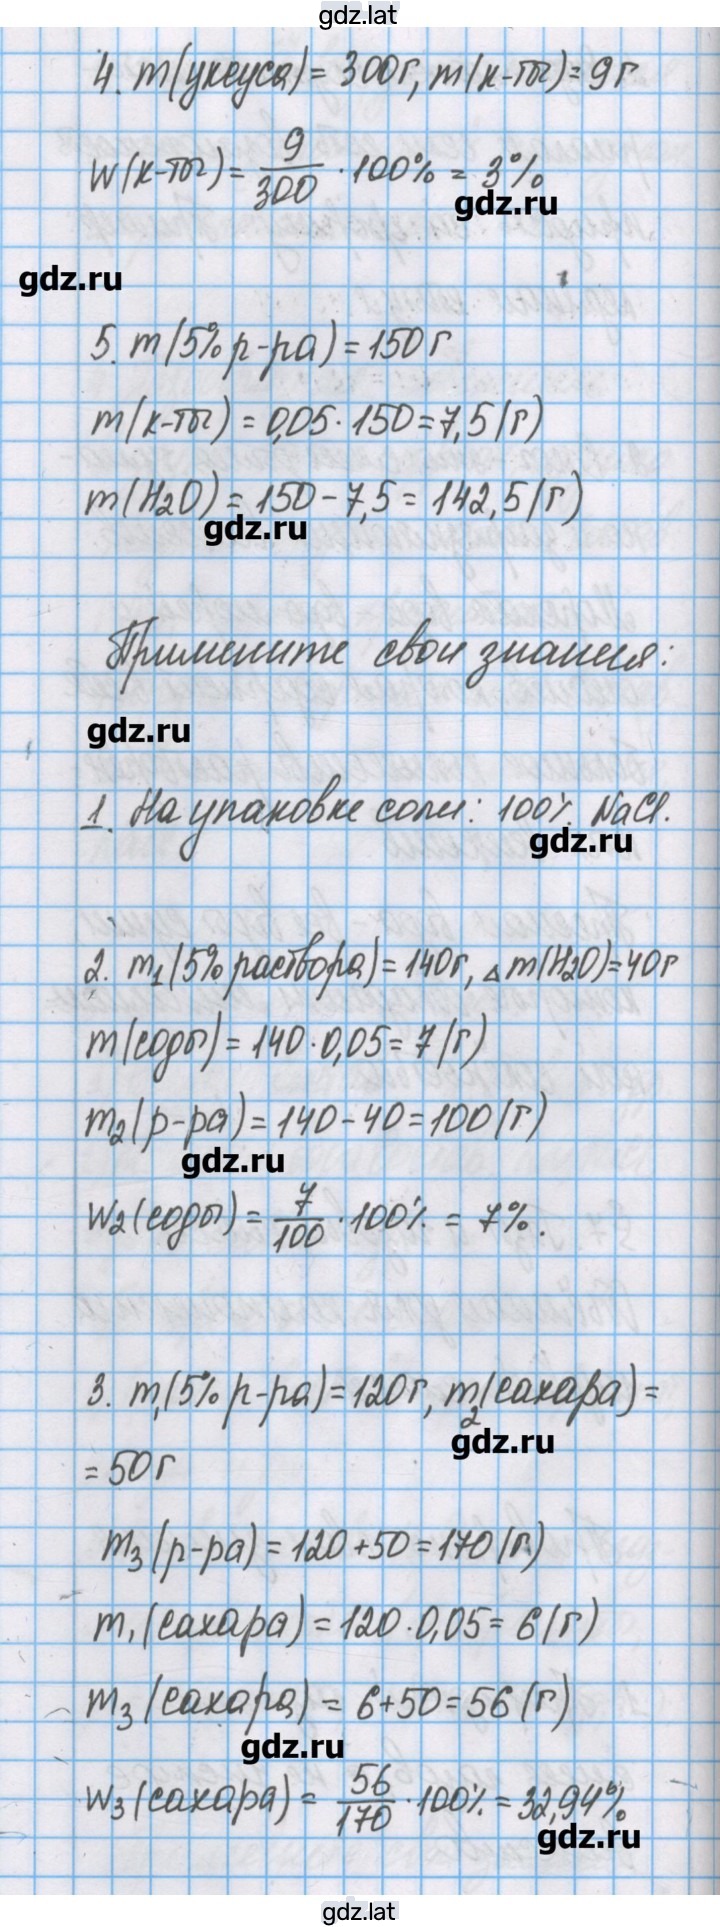 gdz.lat
4. m(уксуса) = 300г, m(к-ты) = 9г
W(к-ты) = 9/300 · 100% = 3%
gdz.ru
gdz.ru
5. m(5% р-ра) = 150г
m(к-ты) = 0,05 · 150 = 7,5 (г)
m(H2O) = 150 - 7,5 = 142,5 (г)
gdz.ru
Примените свои знания:
gdz.ru
1. На упаковке соли: 100% NaCl.
gdz.ru
2. m1(5% раствора) = 140г, Δm(H2O) = 40г
m(соды) = 140 · 0,05 = 7 (г)
m2(р-ра) = 140 - 40 = 100 (г)
gdz.ru
W2(соды) = 7/100 · 100% = 7%.
3. m1(5% р-ра) = 120г, m2(сахара) =
gdz.ru
= 50г
m3(р-ра) = 120 + 50 = 170 (г)
m1(сахара) = 120 · 0,05 = 6 (г)
m3(сахара) = 6 + 50 = 56 (г)
gdz.ru
W3(сахара) = 56/170 · 100% = 32,94%
gdz.ru
gdz.lat